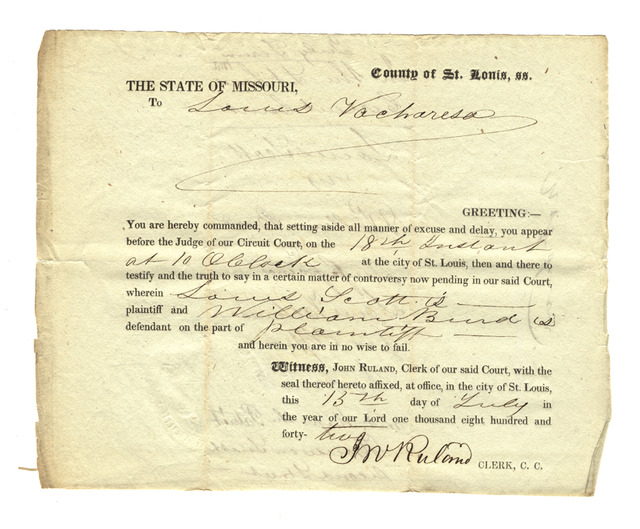 County of St. Louis, ss.
THE STATE OF MISSOURI,
To Louis Vacharesa
GREETING:—
You are hereby commanded, that setting aside all manner of excuse and delay, you appear
before the Judge of our Circuit Court, on the 18th Instant
at 10 OClock at the city of St. Louis, then and there to
testify and the truth to say in a certain matter of controversy now pending in our said Court,
wherein Louis Scott is
plaintiff and William Burd is
defendant on the part of plaintiff
and herein you are in no wise to fail.
Witness, JOHN RULAND, Clerk of our said Court, with the
seal thereof hereto affixed, at office, in the city of St. Louis,
this 13th day of July in
the year of our Lord one thousand eight hundred and
forty- two
Jno Ruland CLERK, C. C.